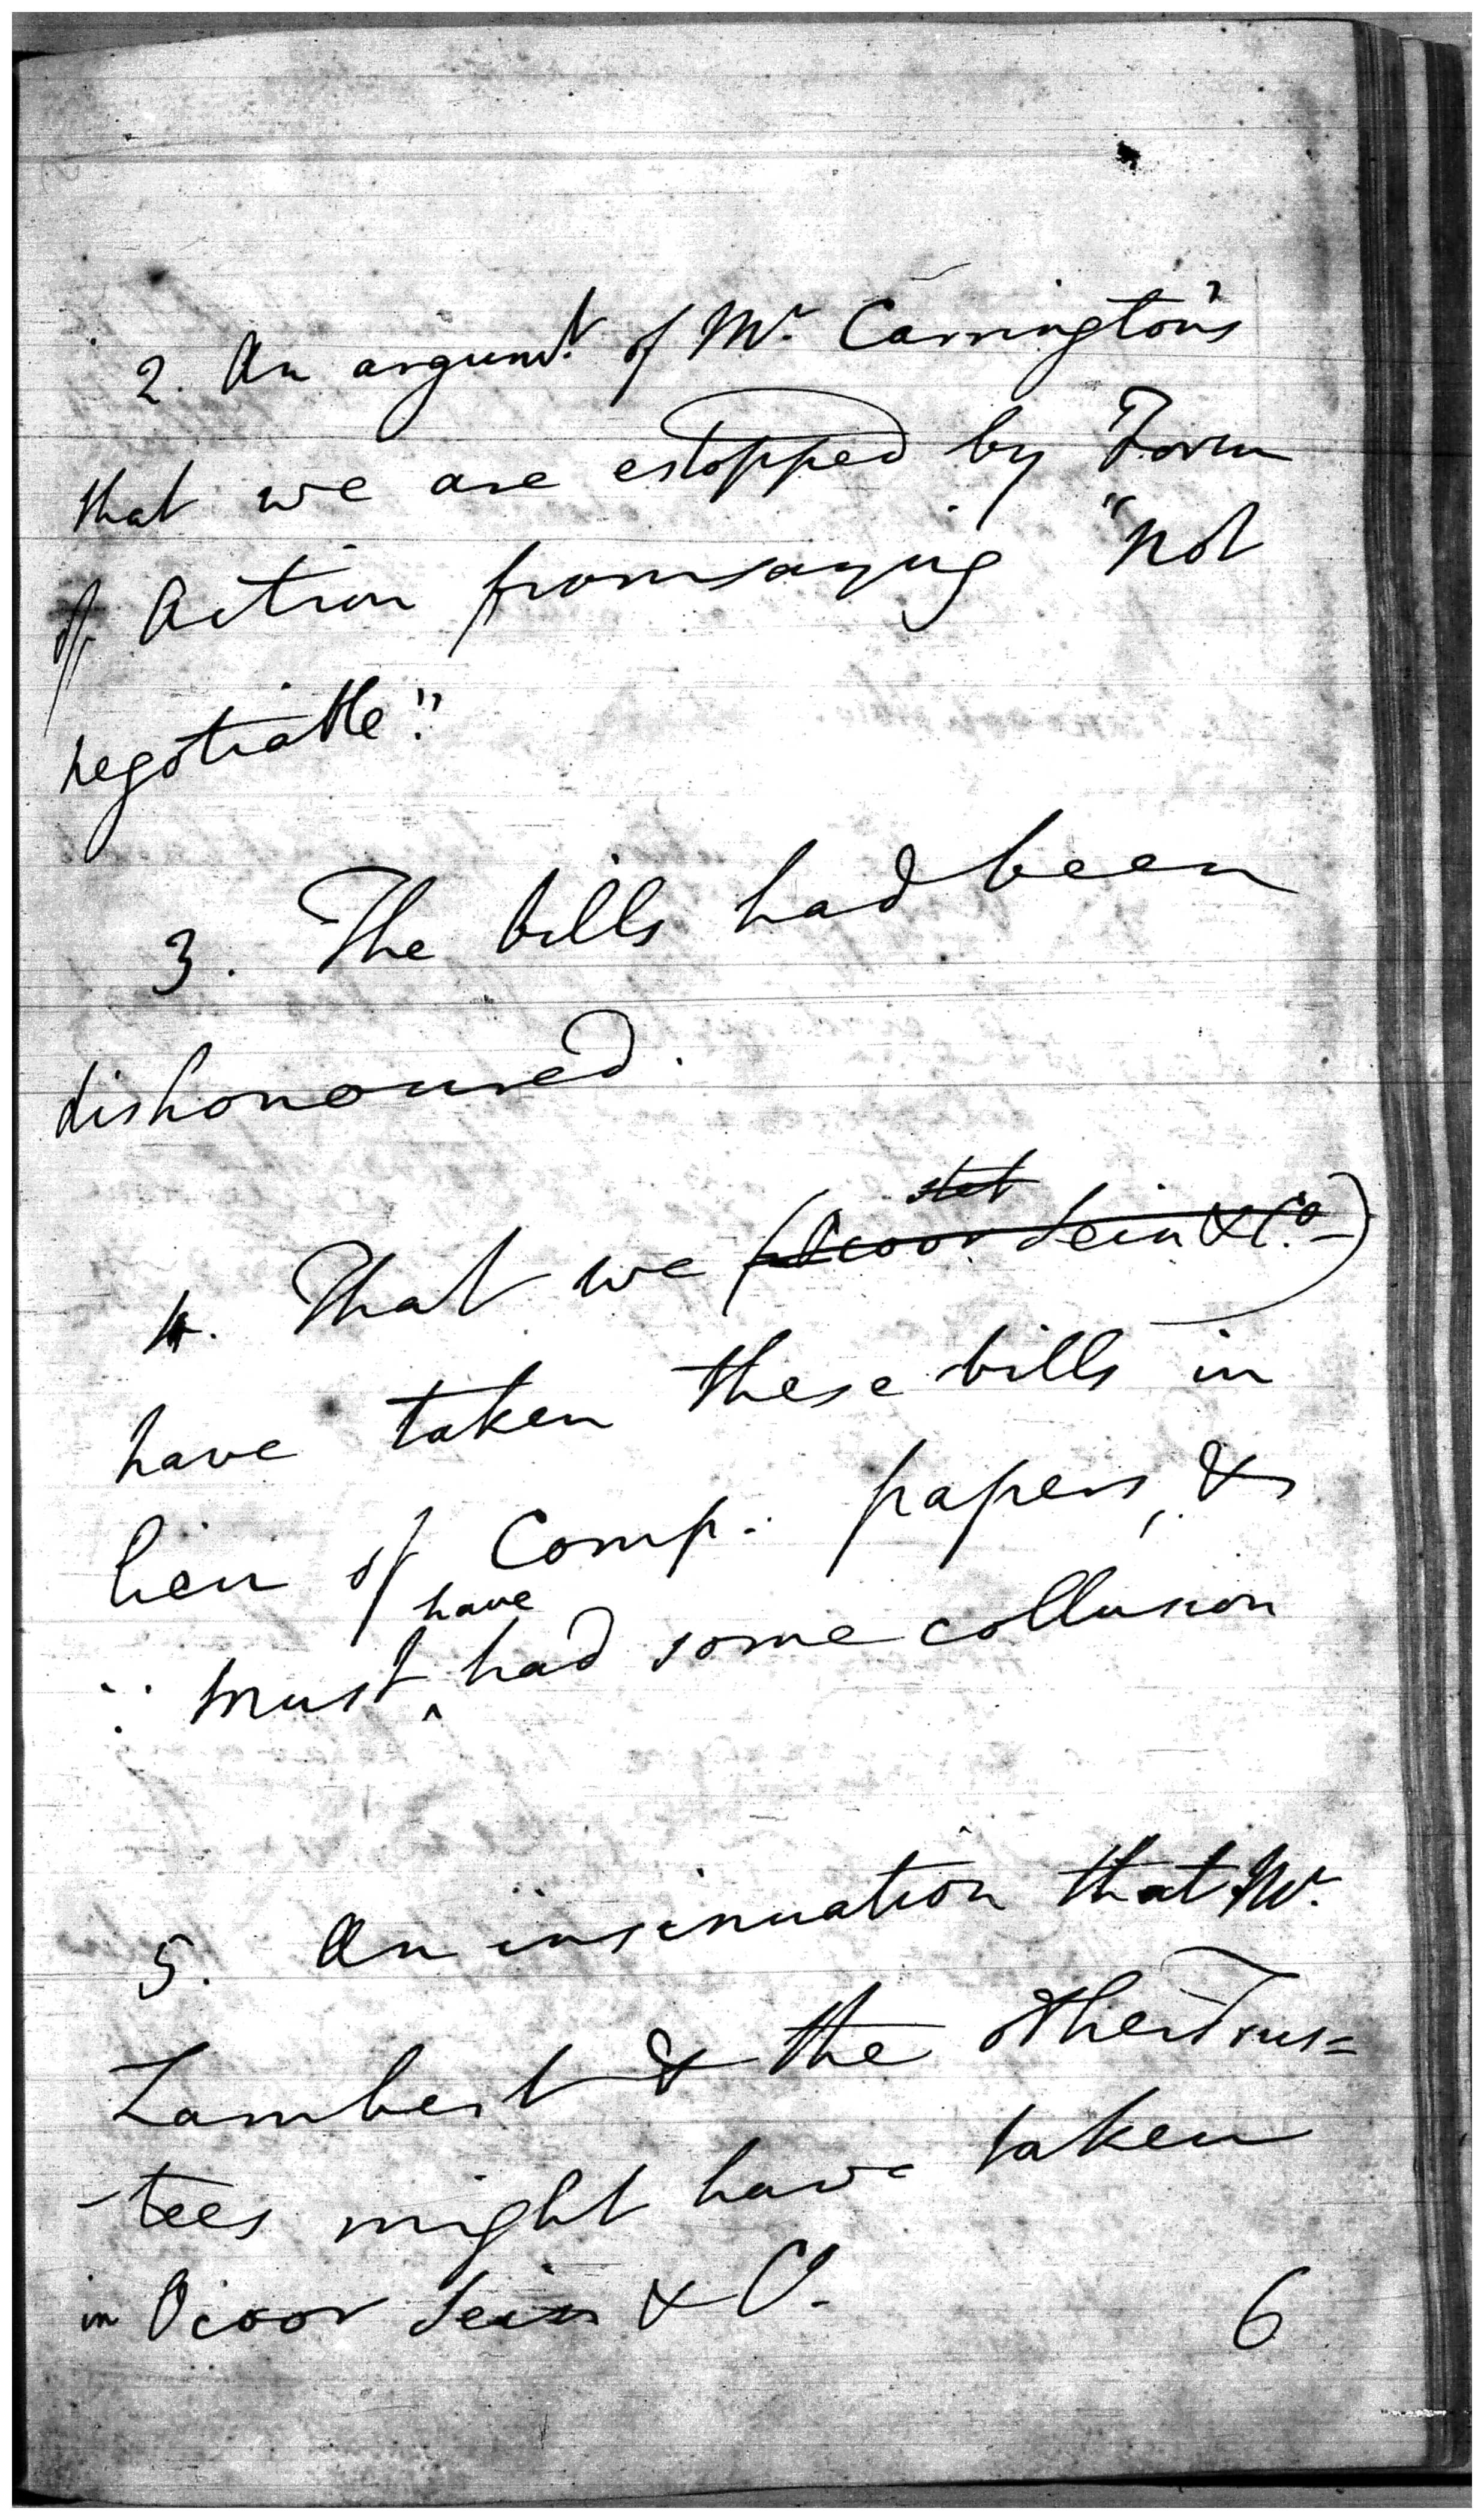 2. An argumt. of Mr. Carrington's
that we are estopped by Form
of Action from saying "not
negotiable".
3. The bills had been
dishonoured.
stet
4. That we (Ocoor Sein & Co.)
have taken these bills in
lieu of Comp. papers, &
have
∴ must ^ had some collusion
5. An insinuation that Mr.
Lambert & the other Trus=
-tees might have taken
in Ocoor Sein & Co.
6